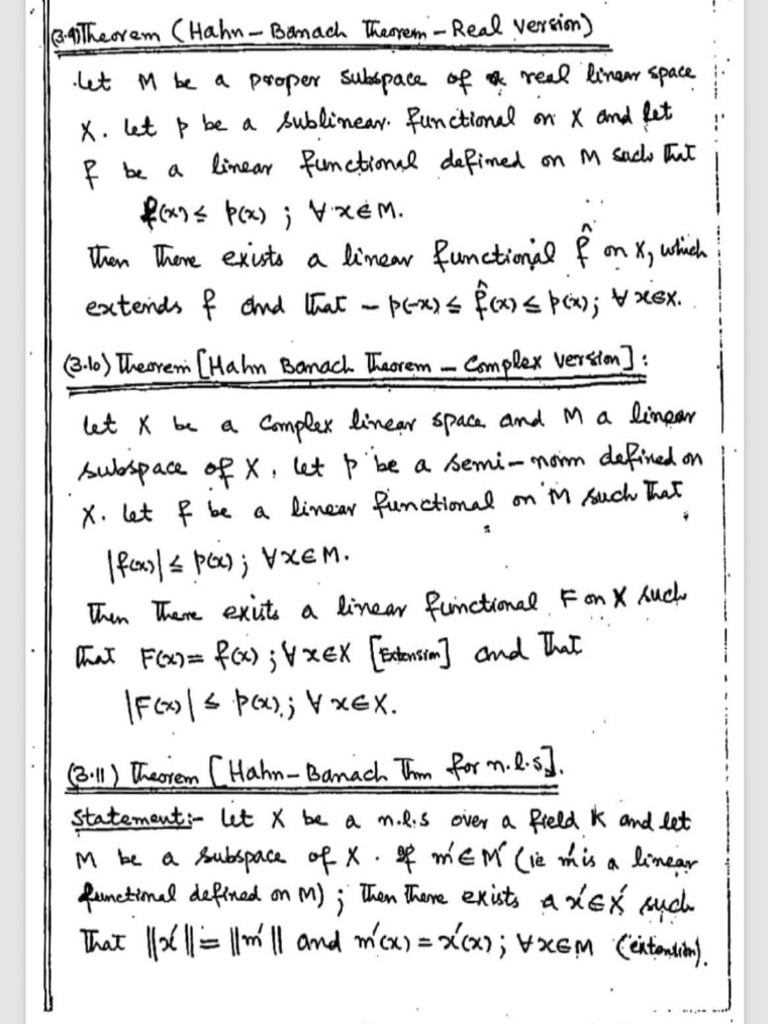 (3.9) Theorem (Hahn-Banach Theorem-Real Version)
Let M be a proper subspace of a real linear space
X. Let p be a sublinear functional on X and let
f be a linear functional defined on M such that
f(x) ≤ p(x) ; ∀ x∈M.
Then There exists a linear functional f̂ on X, which
extends f and that - p(-x) ≤ f̂(x) ≤ p(x); ∀ x∈X.
(3.10) Theorem [Hahn Banach Theorem - Complex Version] :
Let X be a Complex linear space and M a linear
subspace of X. Let p be a semi-norm defined on
X. Let f be a linear functional on M such that
|f(x)| ≤ p(x) ; ∀x∈M.
Then There exists a linear functional F on X such
that F(x) = f(x) ; ∀ x∈X [Extension] and That
|F(x)| ≤ p(x) ; ∀ x∈X.
(3.11) Theorem [Hahn-Banach Thm for n.l.s].
Statement:- Let X be a n.l.s over a field K and let
M be a subspace of X. If m'∈M' (ie m' is a linear
functional defined on M) ; Then there exists a x'∈X' such
That ||x'|| = ||m'|| and m'(x) = x'(x) ; ∀x∈M (extension).